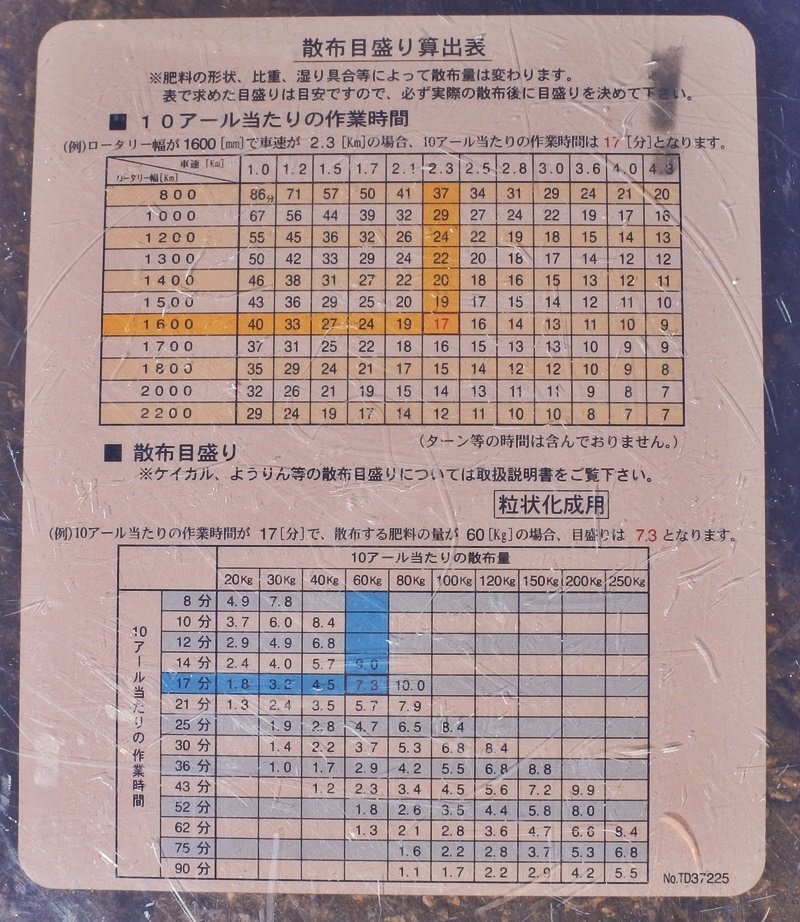 散布目盛り算出表
※肥料の形状、比重、湿り具合等によって散布量は変わります。
表で求めた目盛りは目安ですので、必ず実際の散布後に目盛りを決めて下さい。
■ 10アール当たりの作業時間
(例)ロータリー幅が 1600 [mm]で車速が 2.3 [Km]の場合、10アール当たりの作業時間は 17 [分]となります。
車速 [Km] 1.0 1.2 1.5 1.7 2.1 2.3 2.5 2.8 3.0 3.6 4.0 4.3
ロータリー幅[Km]
800 86分 71 57 50 41 37 34 31 29 24 21 20
1000 67 56 44 39 32 29 27 24 22 19 17 16
1200 55 45 36 32 26 24 22 19 18 15 14 13
1300 50 42 33 29 24 22 20 18 17 14 12 12
1400 46 38 31 27 22 20 18 16 15 13 12 11
1500 43 36 29 25 20 19 17 15 14 12 11 10
1600 40 33 27 24 19 17 16 14 13 11 10 9
1700 37 31 25 22 18 16 15 13 13 10 9 9
1800 35 29 24 21 17 15 14 12 12 10 9 8
2000 32 26 21 19 15 14 13 11 11 9 8 7
2200 29 24 19 17 14 12 11 10 10 8 7 7
(ターン等の時間は含んでおりません。)
■ 散布目盛り
※ケイカル、ようりん等の散布目盛りについては取扱説明書をご覧下さい。
粒状化成用
(例)10アール当たりの作業時間が 17[分]で、散布する肥料の量が 60[Kg]の場合、目盛りは 7.3 となります。
10アール当たりの散布量
20Kg 30Kg 40Kg 60Kg 80Kg 100Kg 120Kg 150Kg 200Kg 250Kg
10アール当たりの作業時間
8分 4.9 7.8
10分 3.7 6.0 8.4
12分 2.9 4.9 6.8
14分 2.4 4.0 5.7 9.0
17分 1.8 3.2 4.5 7.3 10.0
21分 1.3 2.4 3.5 5.7 7.9
25分 1.9 2.8 4.7 6.5 8.4
30分 1.4 2.2 3.7 5.3 6.8 8.4
36分 1.0 1.7 2.9 4.2 5.5 6.8 8.8
43分 1.2 2.3 3.4 4.5 5.6 7.2 9.9
52分 1.8 2.6 3.5 4.4 5.8 8.0
62分 1.3 2.1 2.8 3.6 4.7 6.6 8.4
75分 1.6 2.2 2.8 3.7 5.3 6.8
90分 1.1 1.7 2.2 2.9 4.2 5.5
No.TD37225